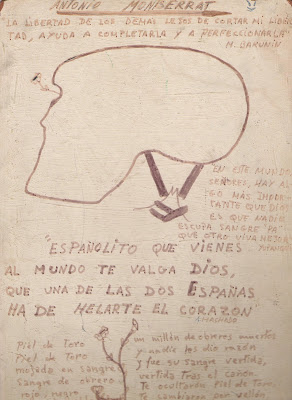 ANTONIO MONTSERRAT
"LA LIBERTAD DE LOS DEMAS LEJOS DE CORTAR MI LIBER
TAD, AYUDA A COMPLETARLA Y A PERFECCIONARLA"
M. BAKUNIN
"EN ESTE MUNDO
SEÑORES, HAY AL
GO MAS IMPOR
TANTE QUE DIOS
ES QUE NADIE
ESCUPA SANGRE "PA"
QUE OTRO VIVA MEJOR"
"ESPAÑOLITO QUE VIENES
AL MUNDO TE VALGA DIOS,
QUE UNA DE LAS DOS ESPAÑAS
HA DE HELARTE EL CORAZON"
A. MACHADO
Piel de Toro
Piel de Toro
mojada en sangre
Sangre de obrero
rojo, negro
un millón de obreros muertos
y nadie les dio razón
y fue su sangre vertida,
vertida tras el cañon.
Te ocultaron Piel de Toro,
te cambiaron por vellón